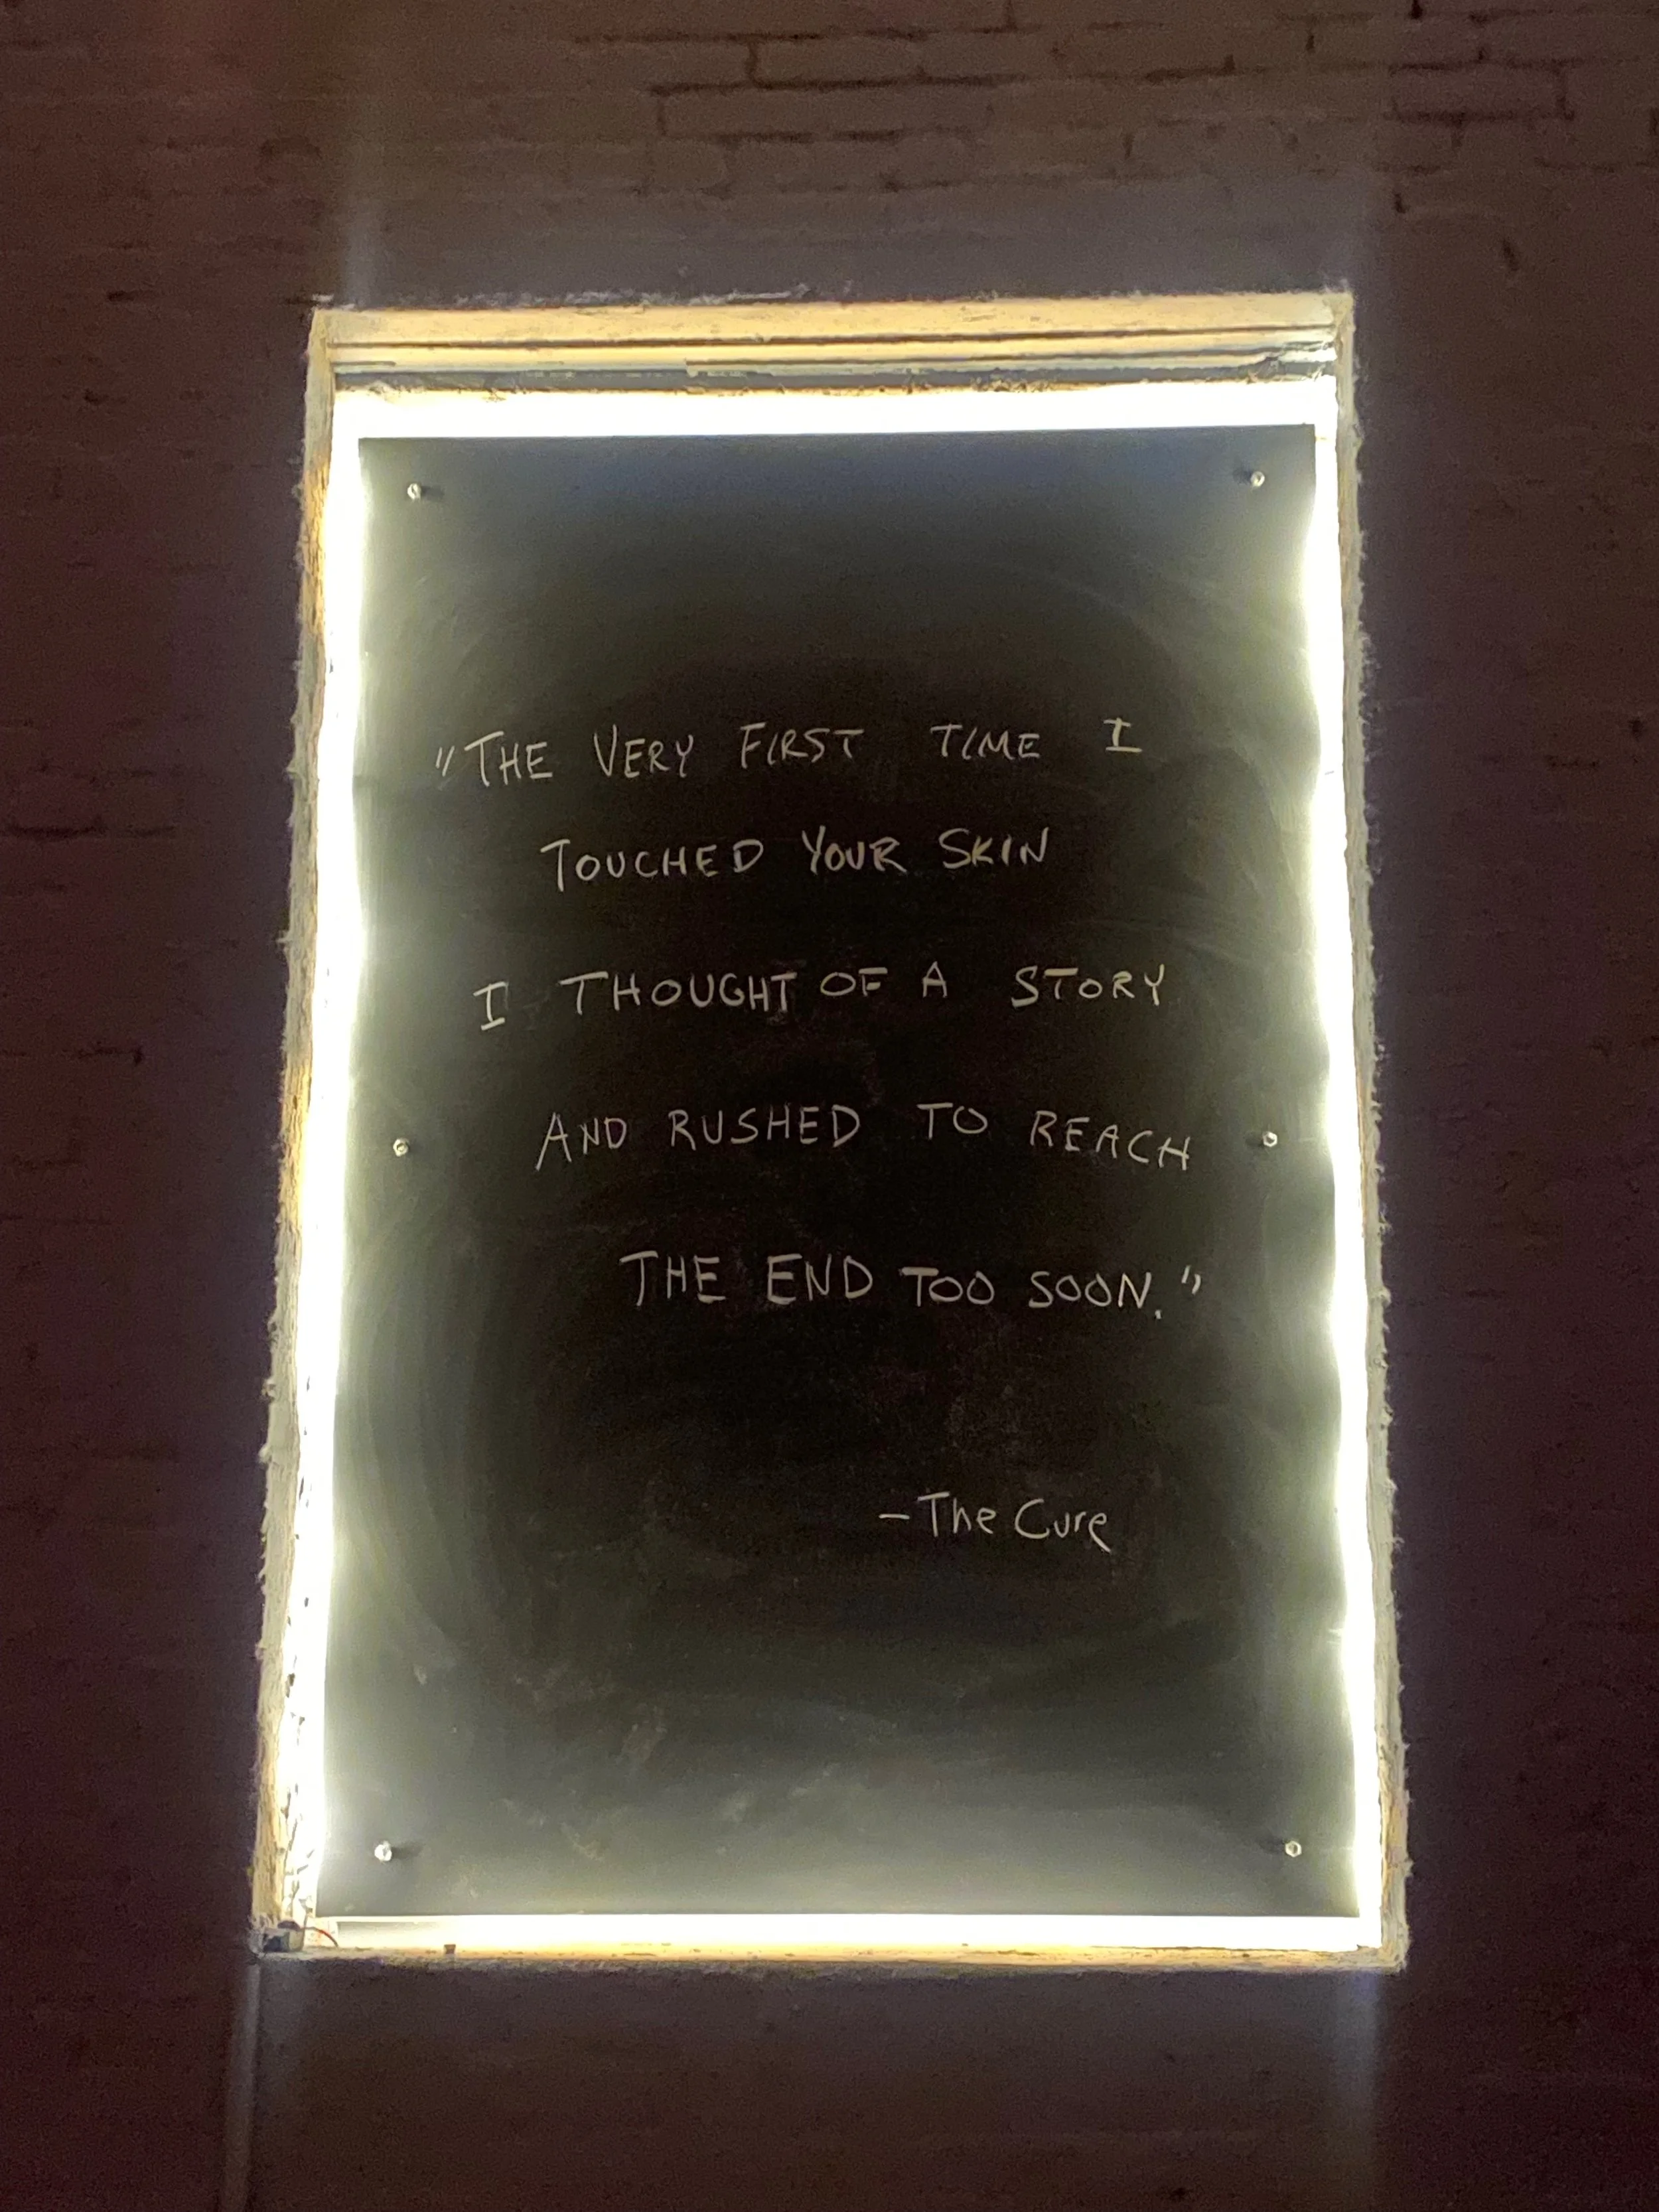 "THE VERY FIRST TIME I
TOUCHED YOUR SKIN
I THOUGHT OF A STORY
AND RUSHED TO REACH
THE END TOO SOON."
-The Cure